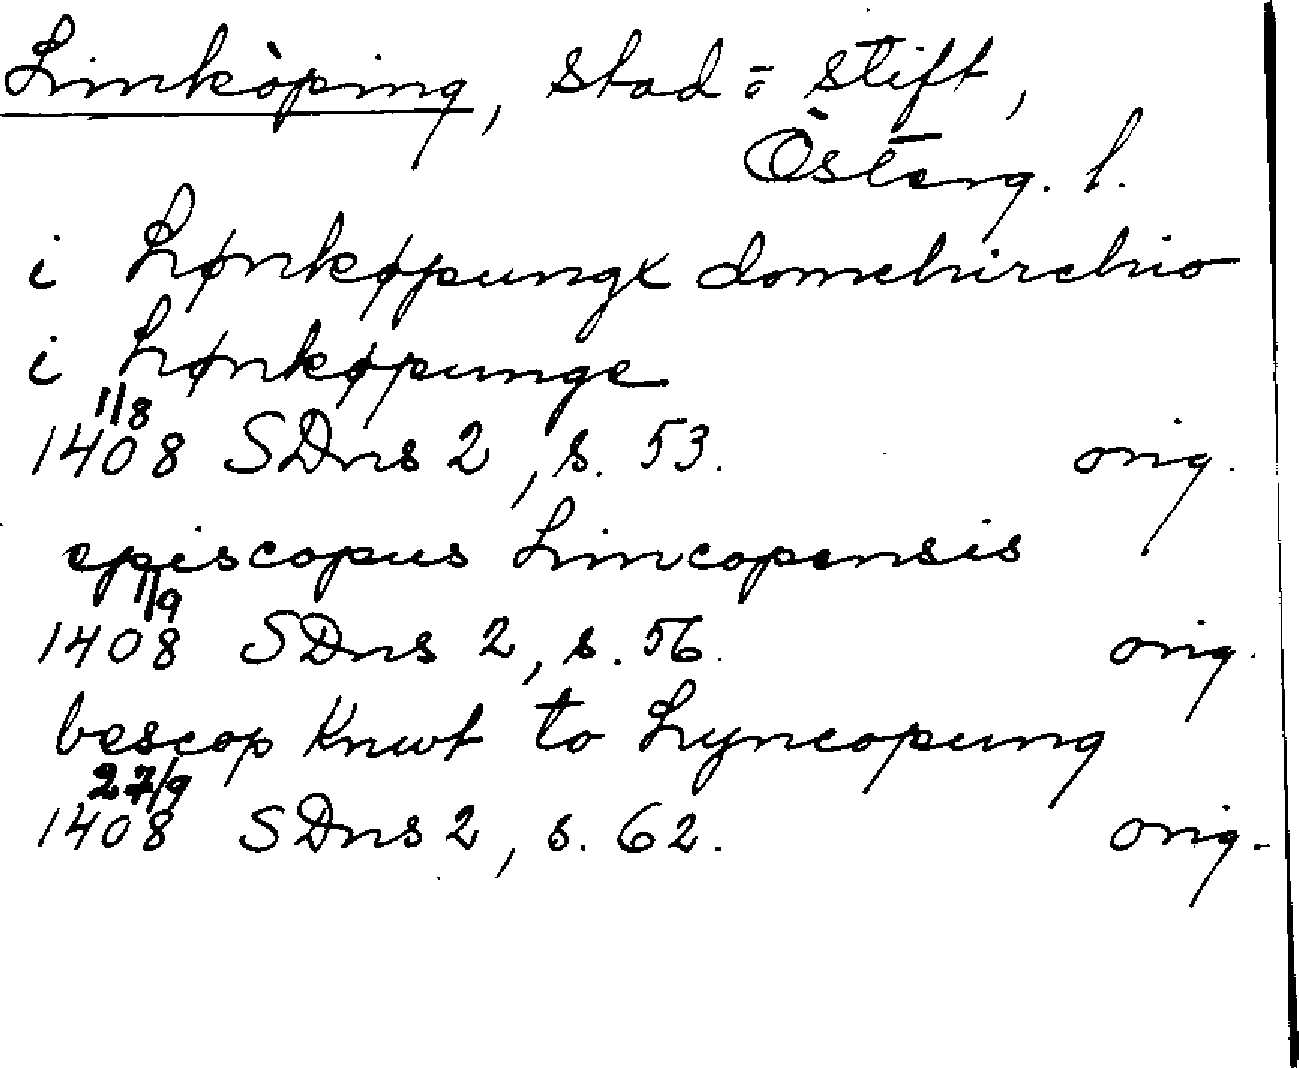 Linköping, stad o. stift,
Österg. l.
i Lønkøpungx domchirchio
i Lønkøpunge
1/8
1408 SDns 2, s. 53. orig.
episcopus Lincopensis
1/9
1408 SDns 2, s. 56. orig.
bescop Knwt to Lyncopung
27/9
1408 SDns 2, s. 62. orig.